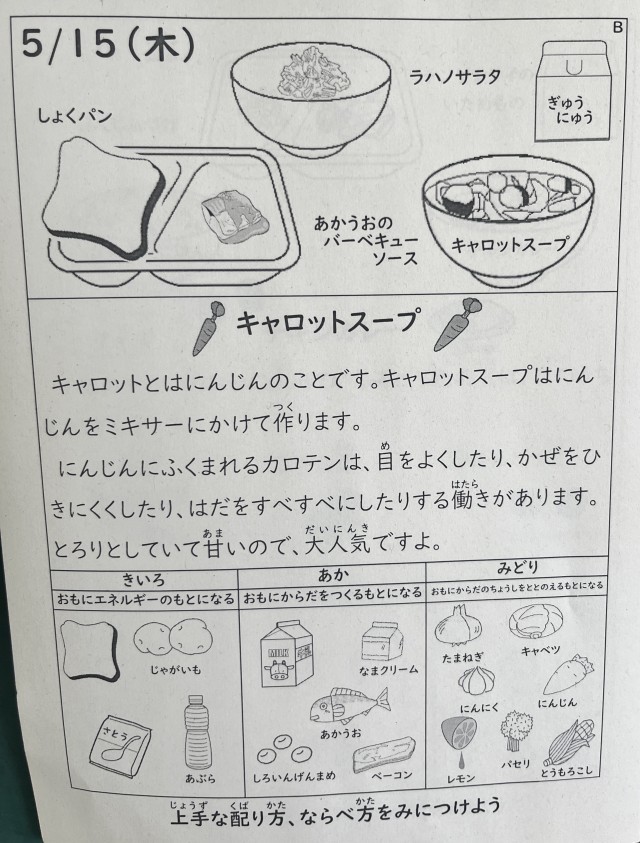 B
5/15(木)
ラハノサラタ
ぎゅう
にゅう
しょくパン
あかうおの
バーベキュー
ソース
キャロットスープ
キャロットスープ
キャロットとはにんじんのことです。キャロットスープはにん
じんをミキサーにかけて作ります。
つく
にんじんにふくまれるカロテンは、目をよくしたり、かぜをひ
め
きにくくしたり、はだをすべすべにしたりする働きがあります。
はたら
とろりとしていて甘いので、大人気ですよ。
あま だいにんき
きいろ
あか
みどり
おもにエネルギーのもとになる
おもにからだをつくるもとになる
おもにからだのちょうしをととのえるもとになる
じゃがいも
さとう
あぶら
MILK
なまクリーム
あかうお
しろいんげんまめ
ベーコン
たまねぎ
キャベツ
にんにく
にんじん
レモン
パセリ
とうもろこし
上手な配り方、ならべ方をみにつけよう
じょうず くば かた かた